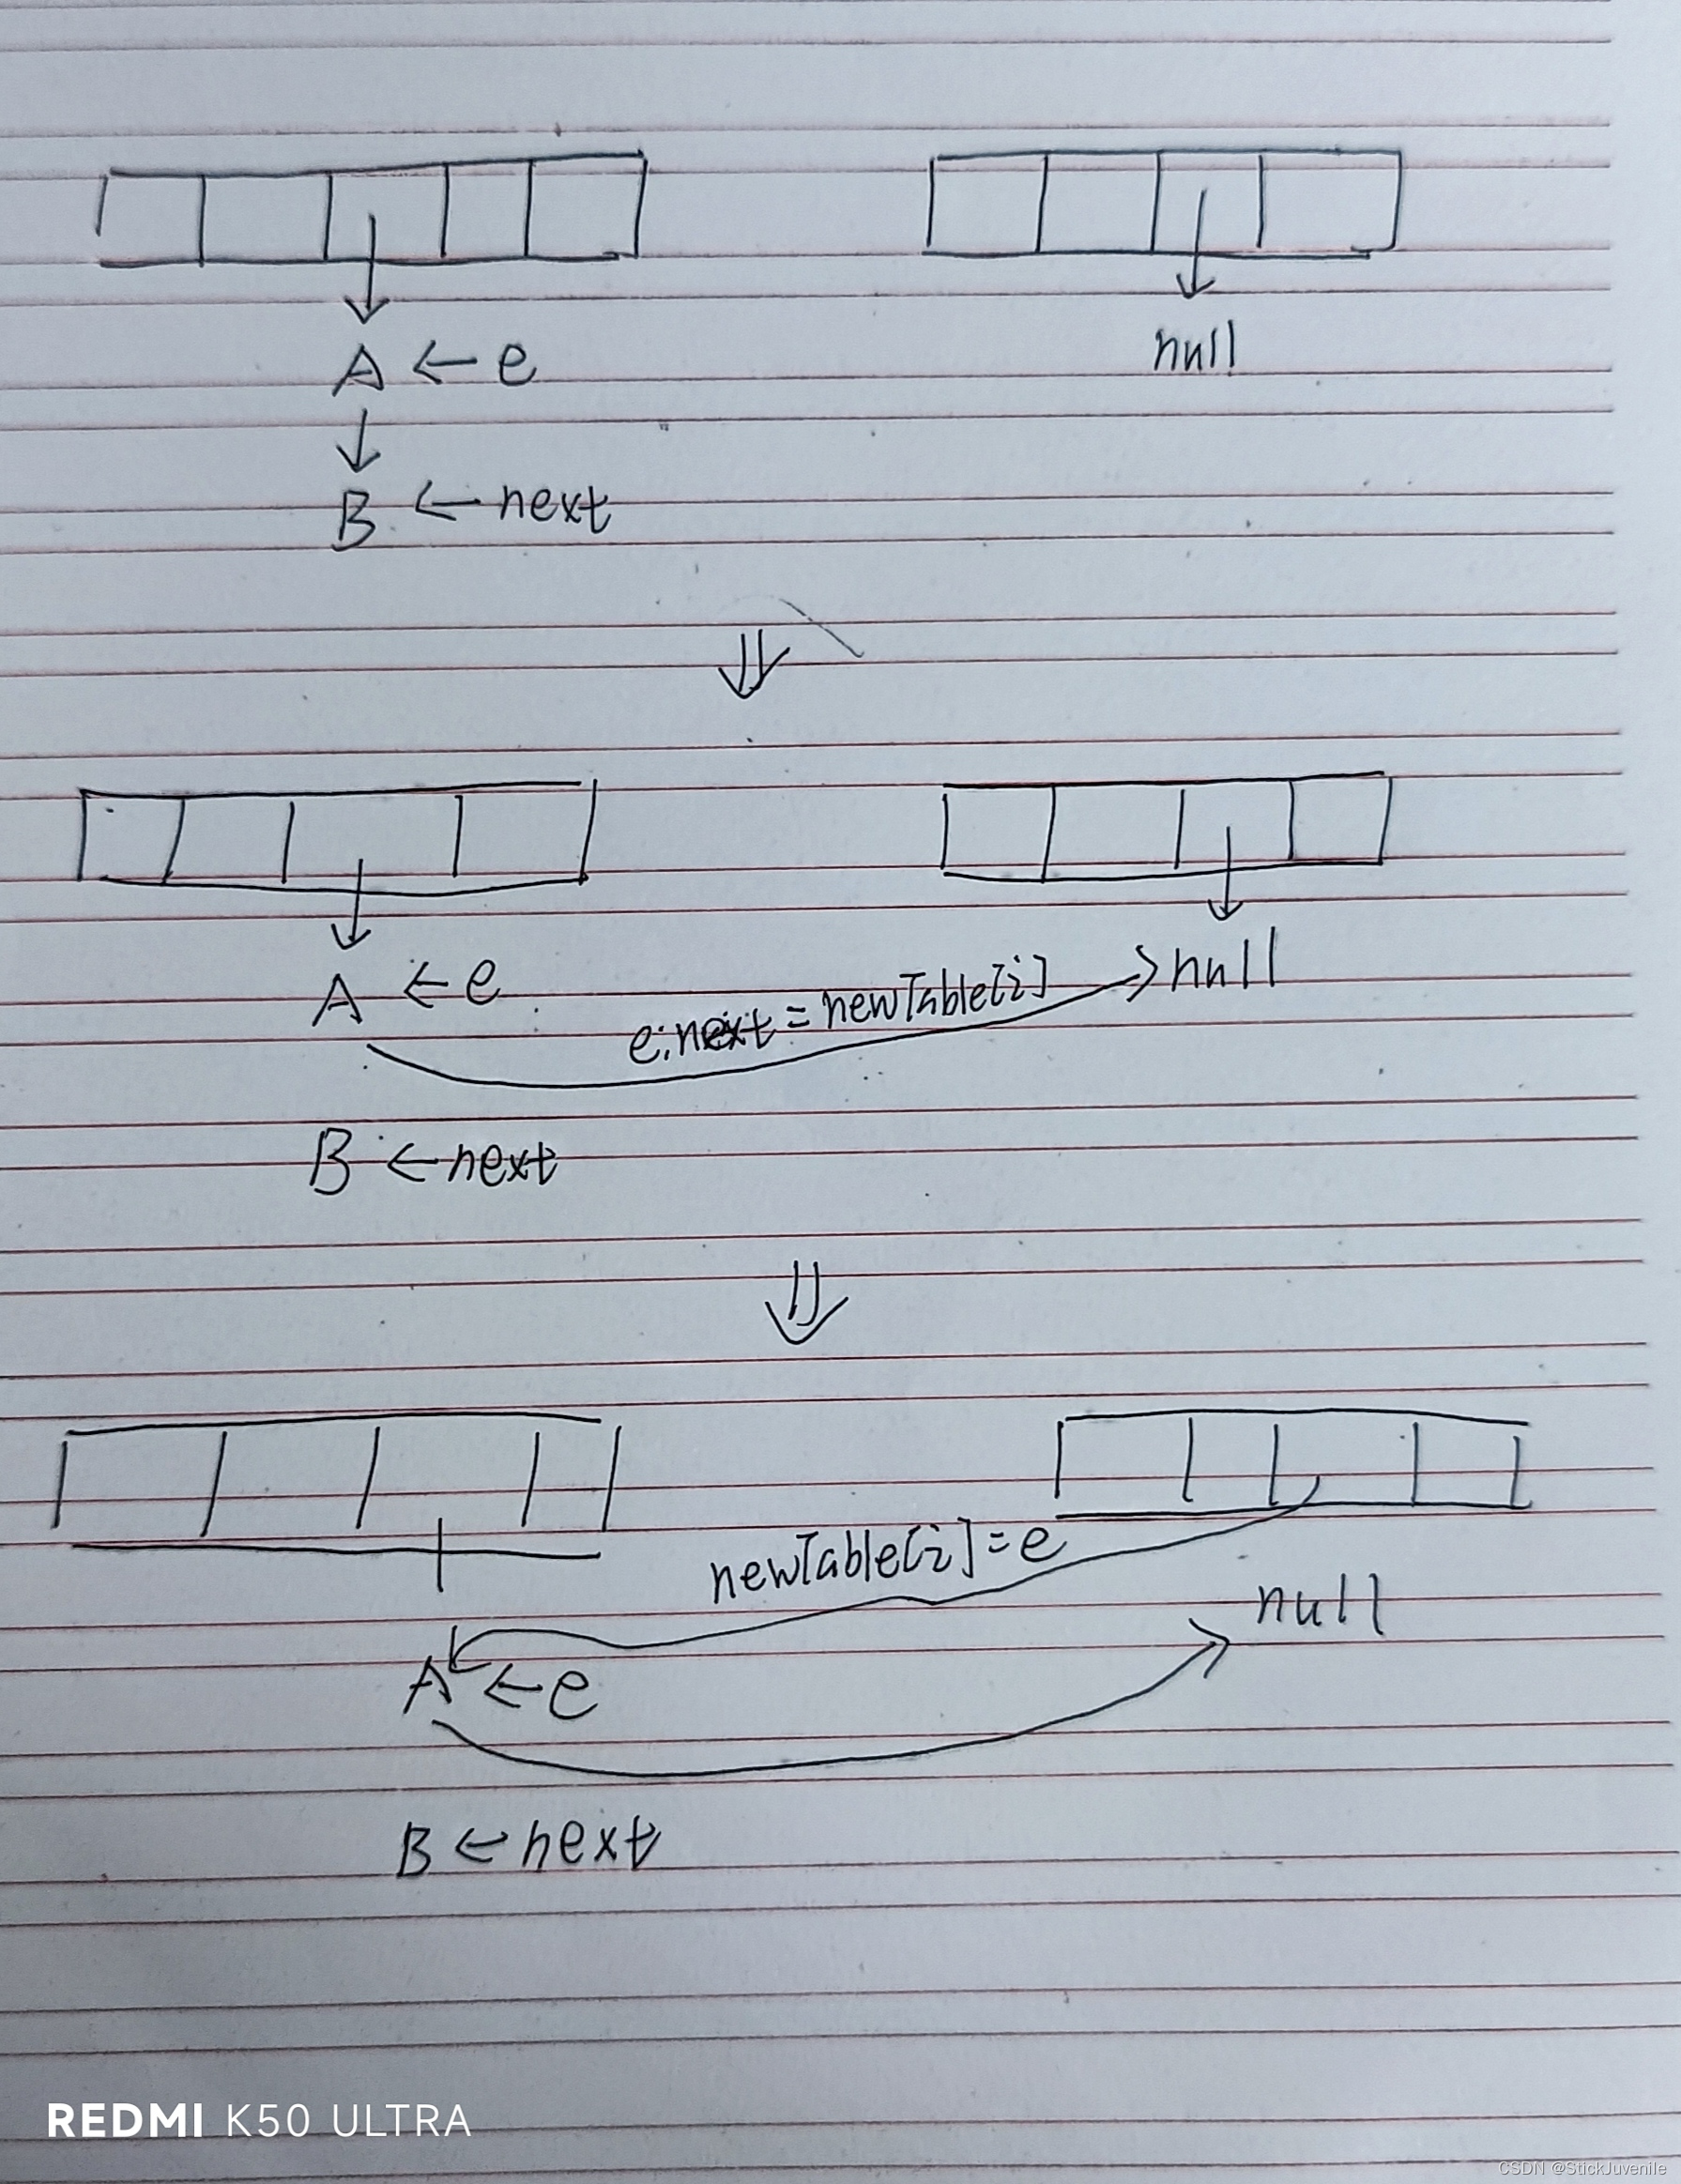 A ← e
null
↓
B ← next
⇓
A ← e
null
e.next = newTable[i]
B ← next
⇓
newTable[i] = e
null
A ← e
B ← next
REDMI K50 ULTRA
CSDN @StickJuvenile